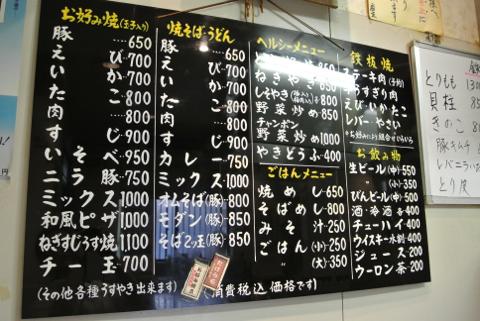 お好み焼(玉子入り)
豚 650
えび 700
いか 700
たこ 800
肉 800
すじ 900
そば 950
ミックス 1,000
和風ピザ 1,000
ねぎすじうす焼 1,100
チー玉 700
(その他各種うすやき出来ます)
焼そば・うどん
豚 650
えび 700
いか 700
たこ 800
肉 800
すじ 900
カレー 750
ミックス 1,000
オムそば(豚) 850
モダン(豚) 850
そば2ッ玉(豚) 850
(消費税込価格です)
ヘルシーメニュー
ねぎやき
しそやき
野菜炒め 800
チャンポン
野菜炒め 1000
やきどうふ 400
ごはんメニュー
焼めし 650
そばめし 800
みそ汁 250
ごはん(小) 250
(大) 350
鉄板焼
ステーキ肉
うすぎり肉
えびいかたこ
レバーやさい
お飲み物
生ビール(中) 550
(小) 350
びんビール(中) 500
酒・冷酒 各 400
チューハイ 400
ウイスキー水割 400
ジュース 200
ウーロン茶 200
とりもも 1300
貝柱
きのこ
豚キムチ
レバニラ
とり皮